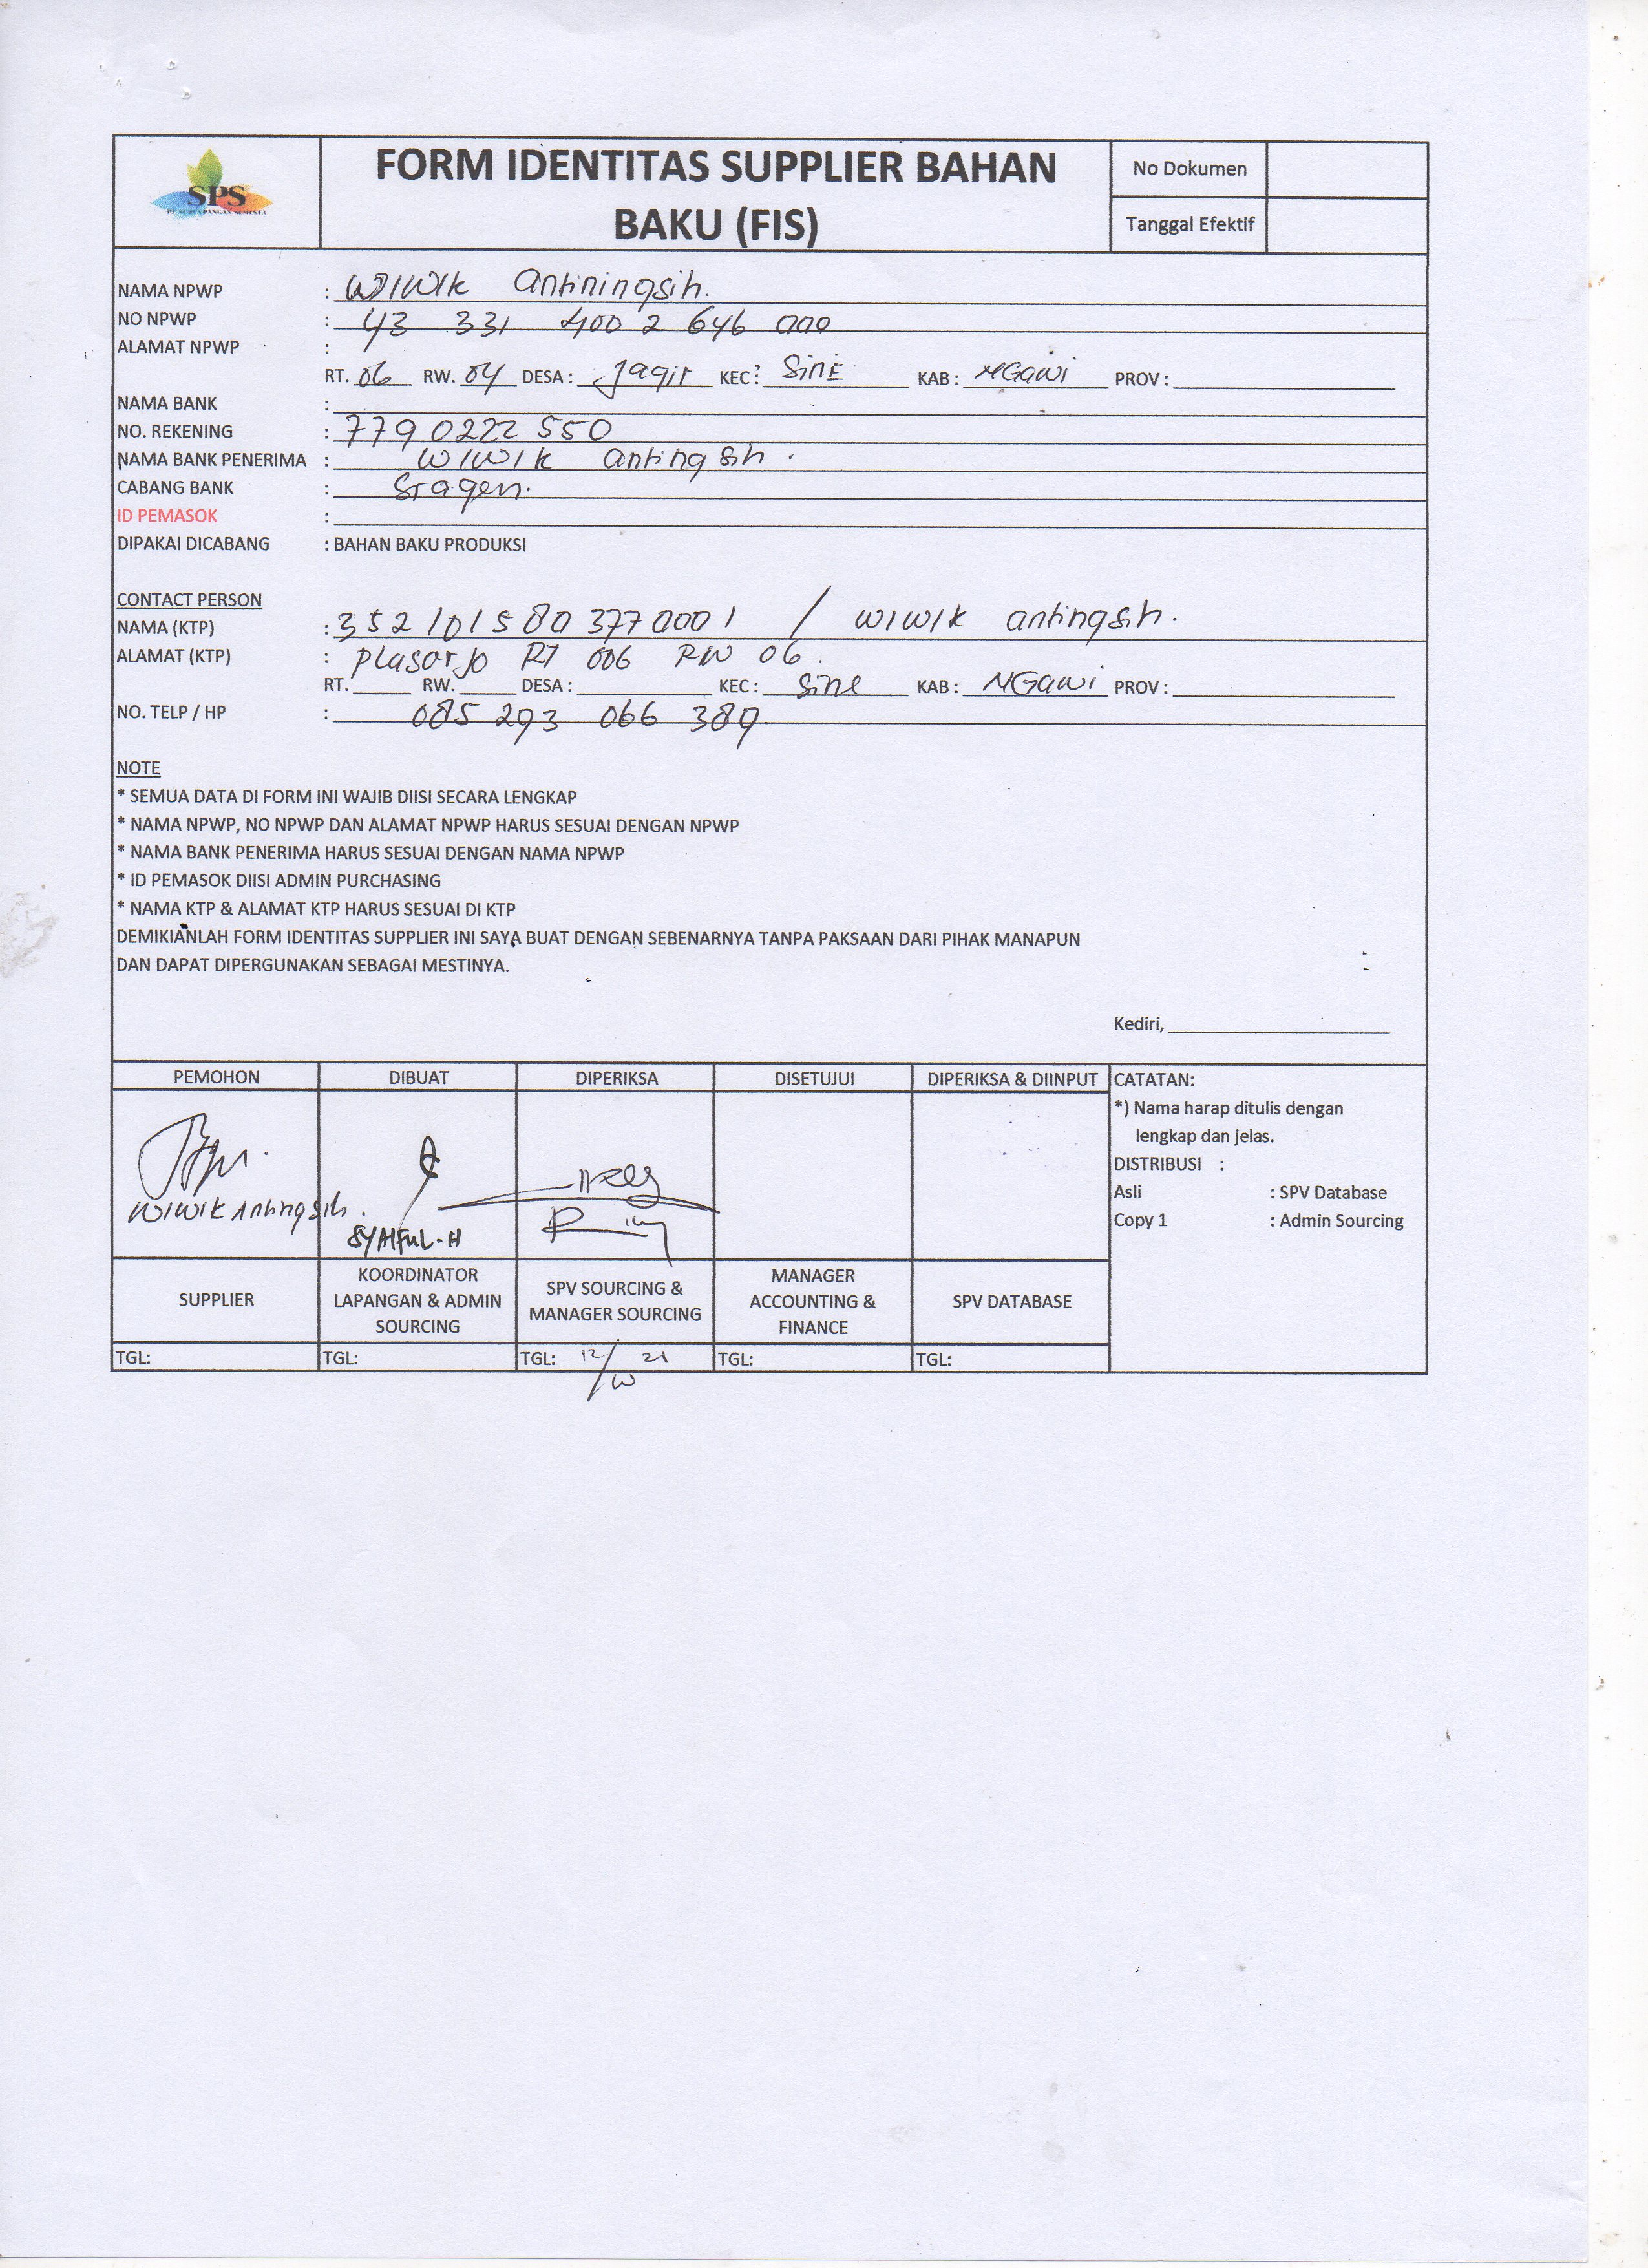 SPS
PT SURYA PANGAN SEMESTA
FORM IDENTITAS SUPPLIER BAHAN
BAKU (FIS)
No Dokumen
Tanggal Efektif
NAMA NPWP : WIWIK Antiningsih.
NO NPWP : 43 331 400 2 646 000
ALAMAT NPWP :
RT. 06 RW. 04 DESA : Jagir KEC : Sine KAB : NGawi PROV :
NAMA BANK :
NO. REKENING : 7790222550
NAMA BANK PENERIMA : WIWIK antingsih.
CABANG BANK : Sragen.
ID PEMASOK :
DIPAKAI DICABANG : BAHAN BAKU PRODUKSI
CONTACT PERSON
NAMA (KTP) : 3521015803770001 / WIWIK antingsih.
ALAMAT (KTP) : Plasorjo RT 006 RW 06.
RT. RW. DESA : KEC : Sine KAB : NGawi PROV :
NO. TELP / HP : 085 293 066 389
NOTE
* SEMUA DATA DI FORM INI WAJIB DIISI SECARA LENGKAP
* NAMA NPWP, NO NPWP DAN ALAMAT NPWP HARUS SESUAI DENGAN NPWP
* NAMA BANK PENERIMA HARUS SESUAI DENGAN NAMA NPWP
* ID PEMASOK DIISI ADMIN PURCHASING
* NAMA KTP & ALAMAT KTP HARUS SESUAI DI KTP
DEMIKIANLAH FORM IDENTITAS SUPPLIER INI SAYA BUAT DENGAN SEBENARNYA TANPA PAKSAAN DARI PIHAK MANAPUN
DAN DAPAT DIPERGUNAKAN SEBAGAI MESTINYA.
Kediri,
PEMOHON DIBUAT DIPERIKSA DISETUJUI DIPERIKSA & DIINPUT CATATAN:
*) Nama harap ditulis dengan
lengkap dan jelas.
DISTRIBUSI :
Asli : SPV Database
Copy 1 : Admin Sourcing
WIWIK Antingsih.
SYAIFUL-H
SUPPLIER
KOORDINATOR
LAPANGAN & ADMIN
SOURCING
SPV SOURCING &
MANAGER SOURCING
MANAGER
ACCOUNTING &
FINANCE
SPV DATABASE
TGL: TGL: TGL: 12/10 21 TGL: TGL: